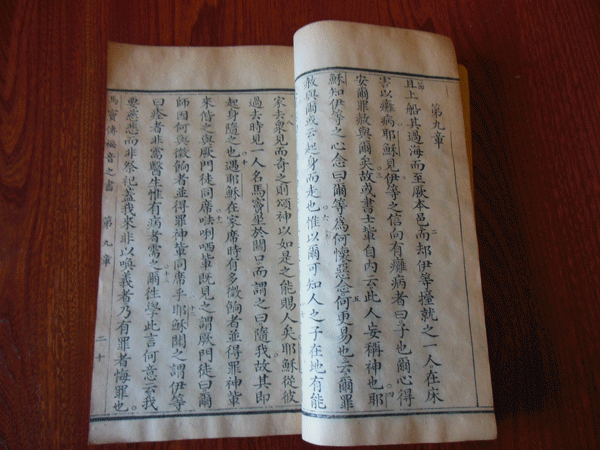 第九章
且上船其過海而至厥本邑而却伊等擡就之一人在床
害以癱病耶穌見伊等之信向有癱病者曰子也爾心得
安爾罪赦與爾矣故或書士輩自內云此人妄稱神也耶
穌知伊等之心念曰爾等為何懷惡念何更易也云爾罪
赦與爾或云起身而走也惟以爾可知人之子在地有能
家去衆見而奇之則頌神以如是之能賜人矣耶穌從彼
過去時見一人名馬竇坐於關口而謂之曰隨我故其即
起身隨之也遇耶穌在家席時有多徵餉者並得罪神輩
來偕之與厥門徒同席唎哂輩既見之謂厥門徒曰爾
師因何與徵餉者並得罪神輩同席乎耶穌聞之謂伊等
曰痊者非需醫生惟有病者需之爾徃學此言何意云我
要慈悲而非祭祀蓋我來非以喚義者乃有罪者悔罪也。
馬竇傳福音之書 第九章 二十